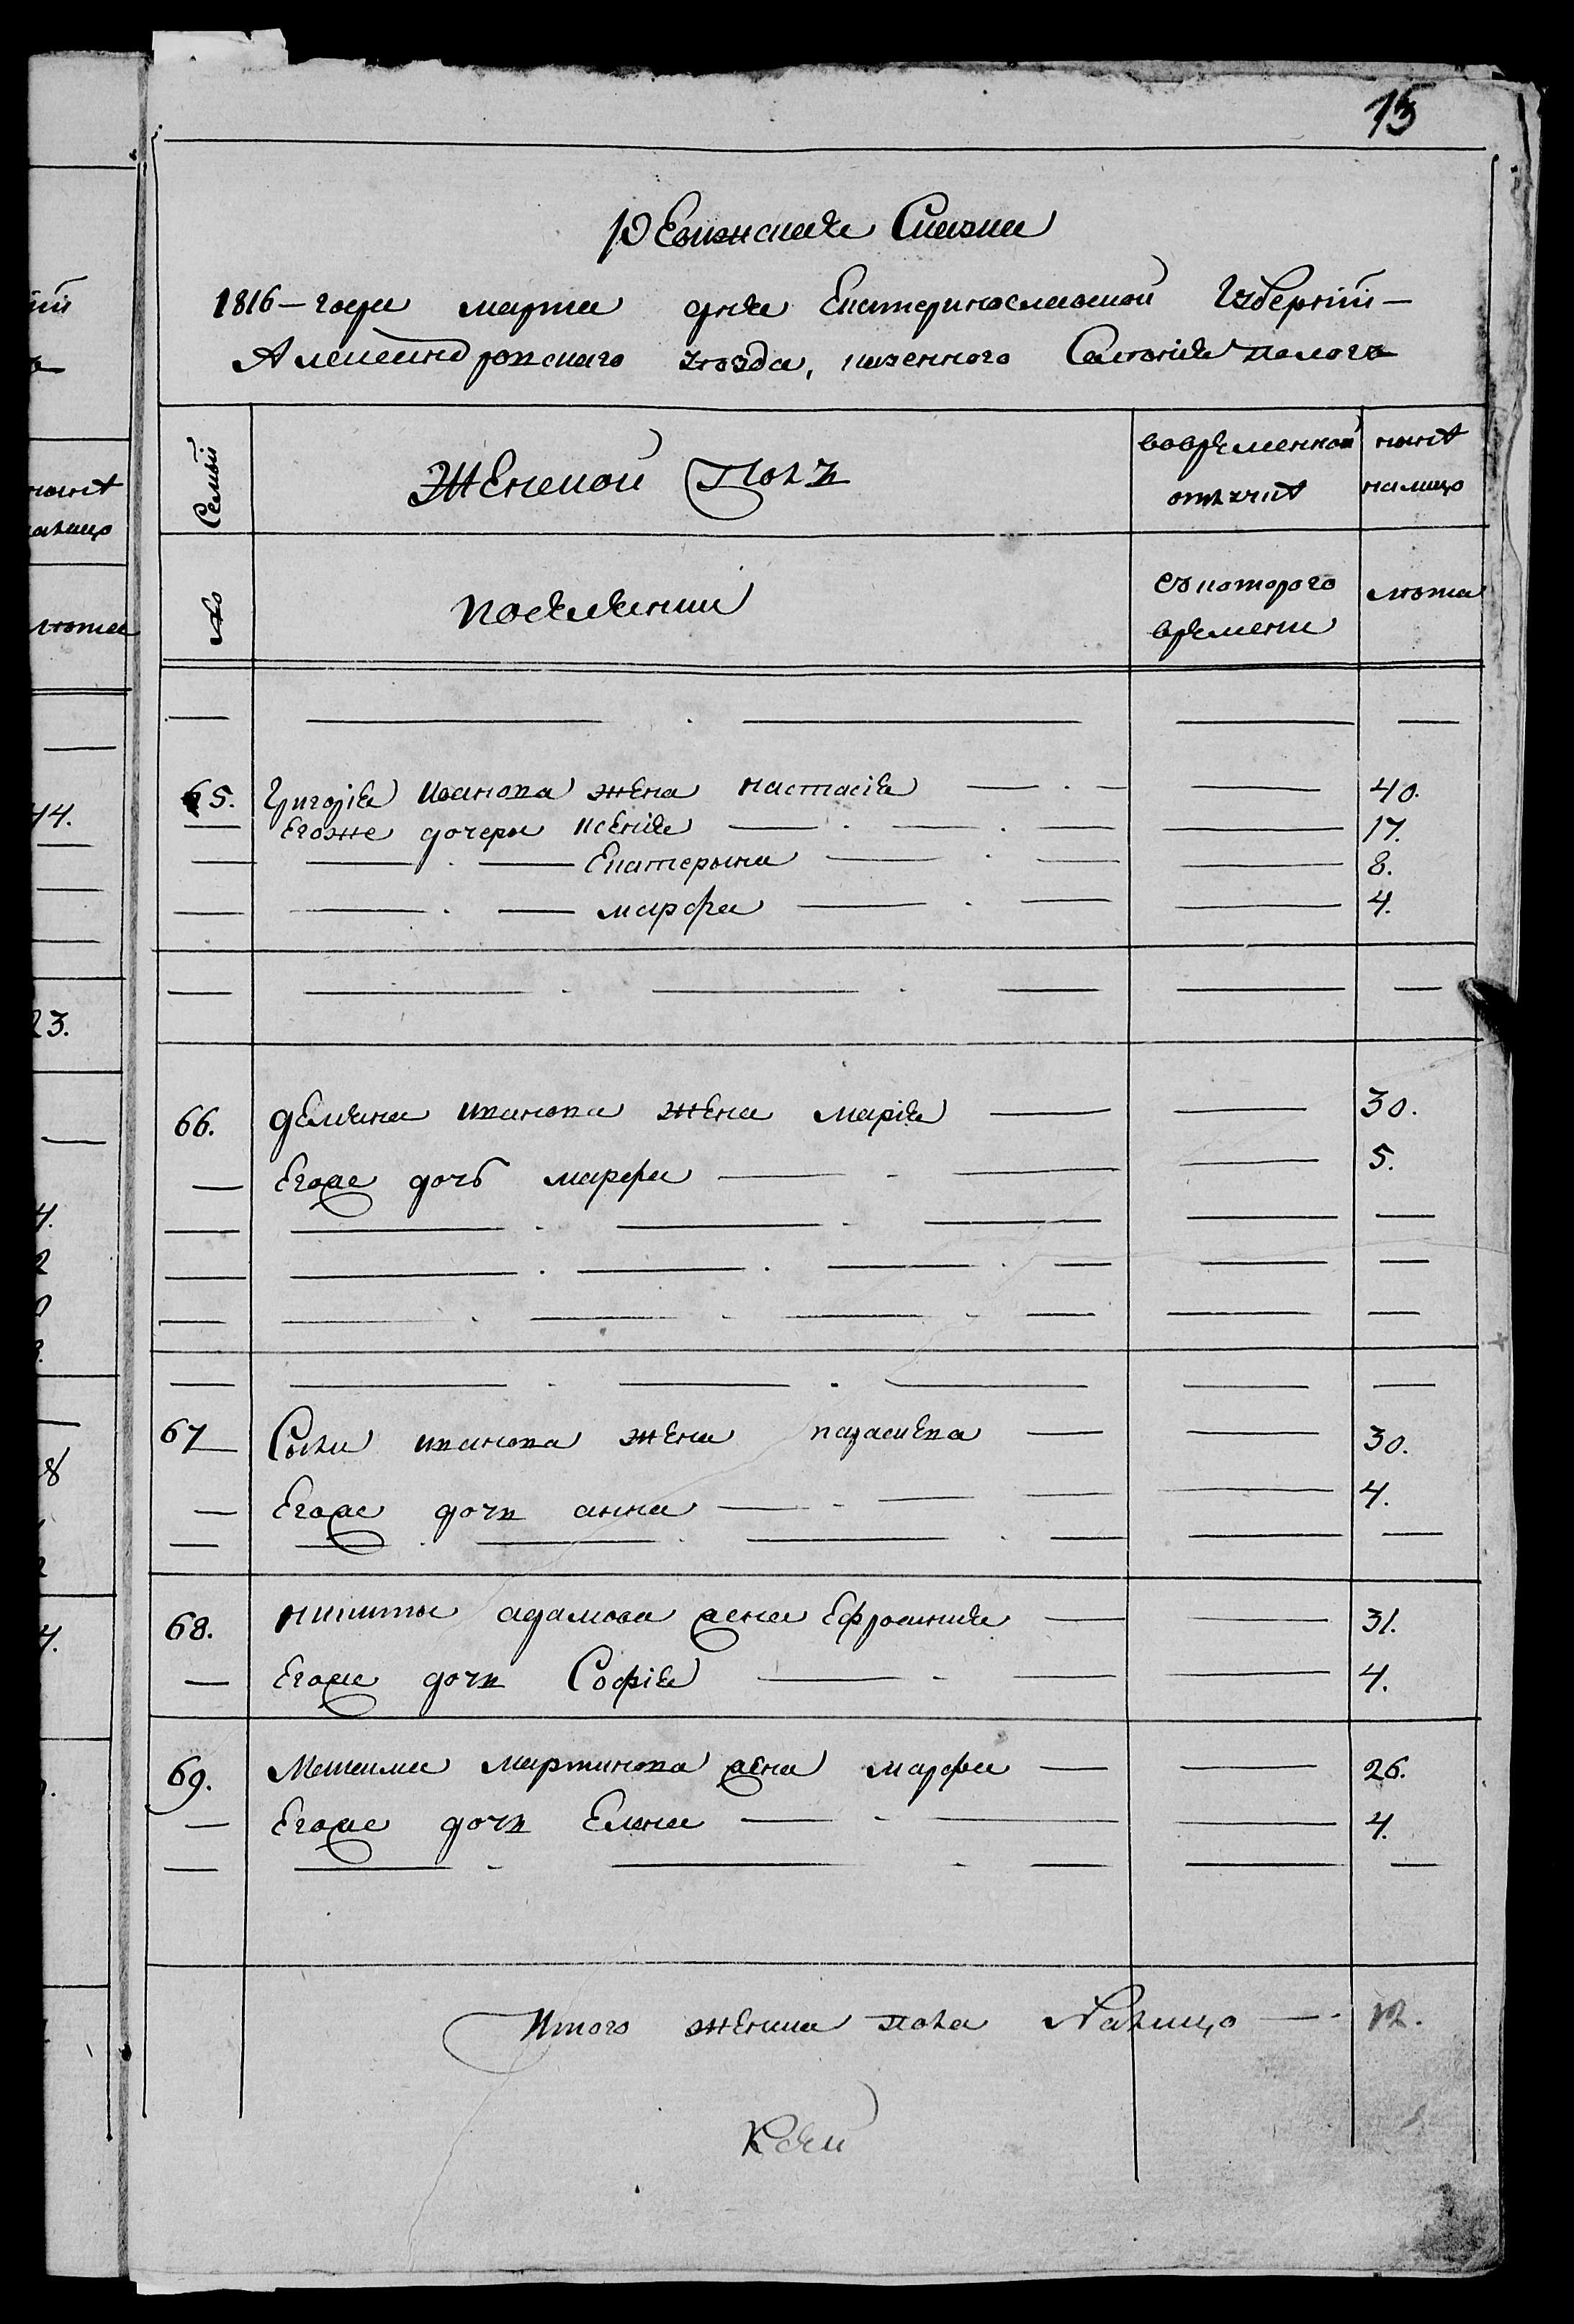 15
Ревижская Сказка
1816 – года марта дня Екатеринославской Губернїи –
Александровскаго уѣзда, казенного Селенїя полога
Семьи
Женской Полъ
вовременной
отлучкѣ
нынѣ
налицо
№
поселянки
съ которого
времени
лѣта
65. Григорїя иванова жена настасїя 40.
Егоже дочери ксенїя 17.
Екатерына 8.
марфа 4.
66. демяна иванова жена марїя 30.
Егоже дочь марфа 5.
67 Савы иванова жена параскева 30.
Егоже дочъ анна 4.
68. никиты адамова жена Ефросиния 31.
Егоже дочъ Софїя 4.
69. Максима мартинова жена марфа 26.
Егоже дочъ Елена 4.
Итого женска пола Налицо 12.
нынѣ
налицо
лѣта
44.
23.
4.
2
0
8
4.